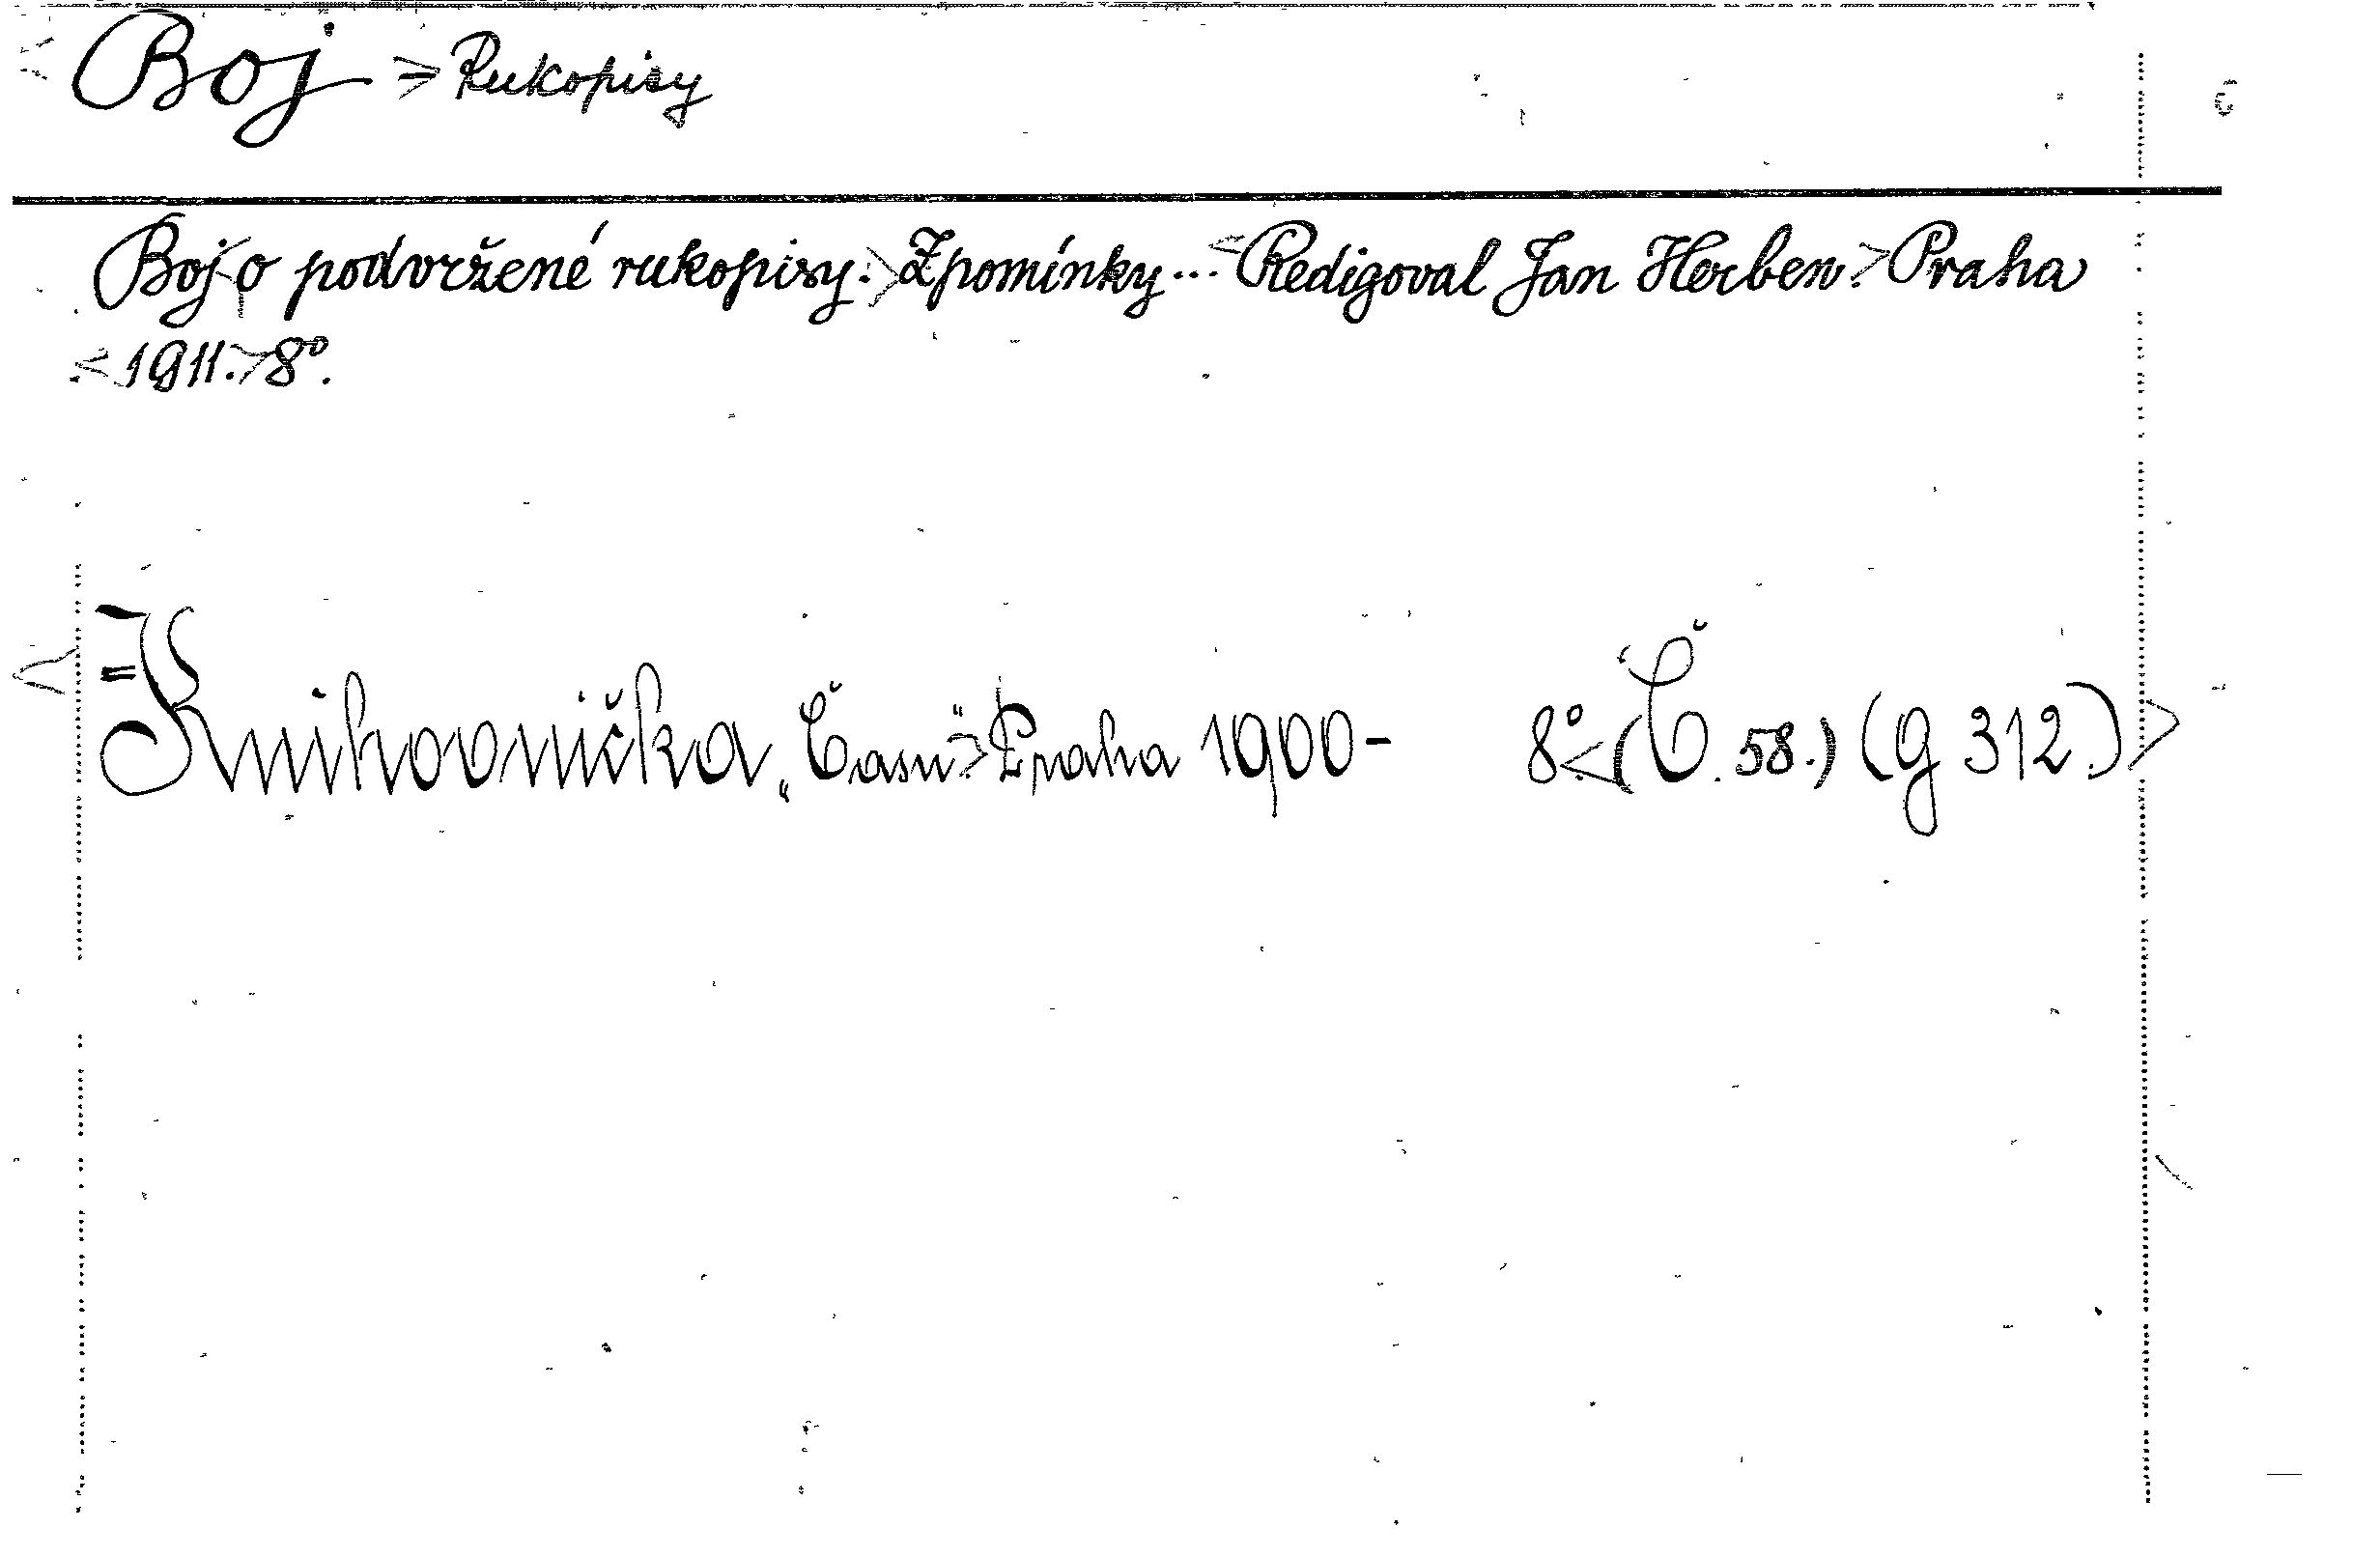 Boj = Rukopisy
Boj o podvržené rukopisy. Zpomínky... Redigoval Jan Herben. Praha
1911. 8°.
= Knihovnička „Času“ Praha 1900- 8°. (Č. 58.) (g 312.)